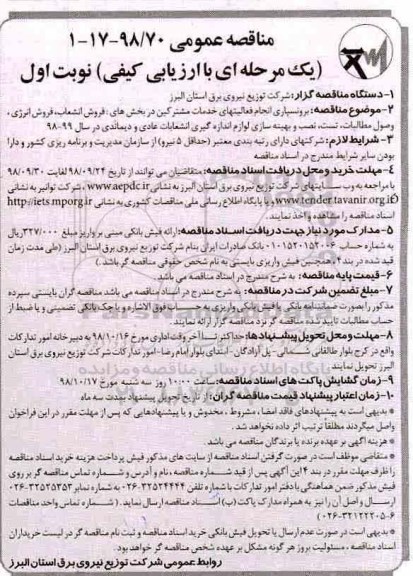 مناقصه عمومی ۹۸/۷۰-۱۷-۱
(یک مرحله ای با ارزیابی کیفی) نوبت اول
۱-دستگاه مناقصه گزار: شرکت توزیع نیروی برق استان البرز
۲-موضوع مناقصه: برونسپاری انجام فعالیتهای خدمات مشترکین در بخش های : فروش انشعاب، فروش انرژی ،
وصول مطالبات، تست، نصب و بهینه سازی لوازم اندازه گیری انشعابات عادی و دیماندی در سال ۹۹-۹۸
۳- شرایط لازم: شرکتهای دارای رتبه بندی معتبر (حداقل ۵ نیرو) از سازمان مدیریت و برنامه ریزی کشور و دارا
بودن سایر شرایط مندرج در اسناد مناقصه
۴-مهلت خرید و محل دریافت اسناد مناقصه: متقاضیان می توانند از تاریخ ۹۸/۰۹/۲۴ لغایت ۹۸/۰۹/۳۰
با مراجعه به وب سایتهای شرکت توزیع نیروی برق استان البرز به نشانی www.aepdc.ir ، شرکت توانیر به نشانی
www.tender.tavanir.org.ir و یا پایگاه اطلاع رسانی ملی مناقصات کشوری به نشانی http://iets.mporg.ir
اسناد مناقصه را مشاهده و اخذ نمایند.
۵-مدارک مورد نیاز جهت دریافت اسناد مناقصه: ارائه فیش بانکی مبنی بر واریز مبلغ ۳۲۷/۰۰۰ ریال
به شماره حساب ۰۱۰۱۵۲۰۱۵۲۰۰۶ بانک صادرات ایران بنام شرکت توزیع نیروی برق استان البرز (طی مدت زمان
قید شده در بند ۴، همچنین فیش واریزی بایستی به نام شخص حقوقی مناقصه گر باشد.)
۶-قیمت پایه مناقصه: به شرح مندرج در اسناد مناقصه می باشد.
۷-مبلغ تضمین شرکت در مناقصه: به شرح مندرج در اسناد مناقصه می باشد مناقصه گران بایستی سپرده
مذکور را بصورت ضمانتنامه بانکی یا فیش بانکی واریزی به حساب فوق الاشاره و یا چک بانکی تضمینی و یا ضبط از
حساب مطالبات تایید شده مناقصه گر نزد مناقصه گزار ارائه نمایند.
۸-مهلت و محل تحویل پیشنهادها: حداکثر تا آخر وقت اداری مورخ ۹۸/۱۰/۱۶ به دبیرخانه امور تدارکات
واقع در کرج بلوار طالقانی شمالی - پل آزادگان - ابتدای بلوار امام رضا - امور تدارکات شرکت توزیع نیروی برق استان
البرز تحویل نمایند.
۹-زمان گشایش پاکت های اسناد مناقصه: ساعت ۱۰:۰۰ روز سه شنبه مورخ ۹۸/۱۰/۱۷
۱۰-زمان اعتبار پیشنهاد قیمت مناقصه گران: از تاریخ تحویل پیشنهاد بمدت سه ماه
* بدیهی است به پیشنهادهای فاقد امضا ، مشروط ، مخدوش و یا پیشنهادهایی که پس از مهلت مقرر در این فراخوان
واصل میگردند مطلقا ترتیب اثر داده نخواهد شد.
* هزینه آگهی بر عهده برنده یا برندگان مناقصه می باشد
* متقاضی موظف است در صورت گرفتن اسناد مناقصه از سایت های مذکور فیش پرداخت هزینه خرید اسناد مناقصه
را ظرف مهلت مقرر در بند ۴ این آگهی پس از قید شماره مناقصه، نام و آدرس و شماره تماس مناقصه گر بر روی
فیش مذکور ضمن هماهنگی با دفتر امور تدارکات با شماره تلفن ۳۲۵۲۴۴۴۴-۰۲۶ به شماره نمابر ۳۲۵۲۵۳۵۳-۰۲۶
ارسال و اصل آن را نیز به همراه مدارک پاکت (ب) اسناد مناقصه ارسال نماید. (شماره تماس واحد مناقصات
۶-۳۲۱۲۲۲۰۵-۰۲۶)
* بدیهی است در صورت عدم ارسال یا تحویل فیش بانکی خرید اسناد مناقصه و ثبت نام مناقصه گر در لیست خریداران
اسناد مناقصه ، مسئولیت بروز هر گونه مشکل بر عهده شخص مناقصه گر خواهد بود.
روابط عمومی شرکت توزیع نیروی برق استان البرز